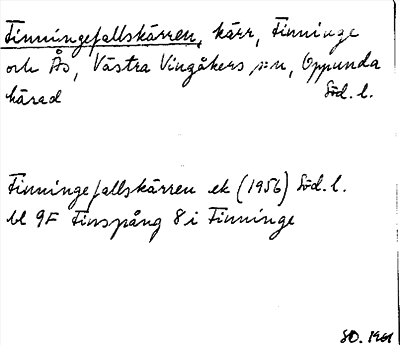 Finningefallskärren, kärr, Finninge
och Ås, Västra Vingåkers sn, Oppunda
härad Söd. l.
Finningefallskärren ek (1956) Söd. l.
bl 9F Finspång 8 i Finninge
SO. 1961